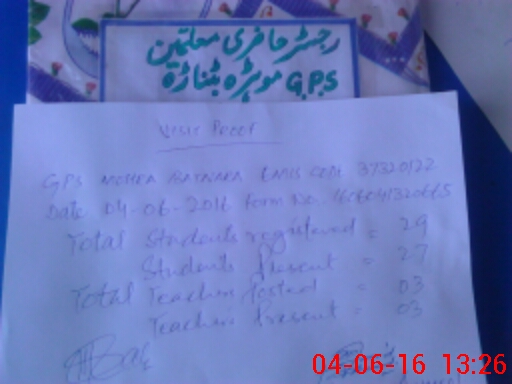 رجسٹر حاضری معلمین
G.P.S موہڑہ بٹناڑہ
VISIT PROOF
GPS MOHRA BATNARA EMIS CODE 37320122
Date 04-06-2016 Form No.
Total Students registered = 29
Students Present = 27
Total Teachers Posted = 03
Teachers Present = 03
04-06-16 13:26